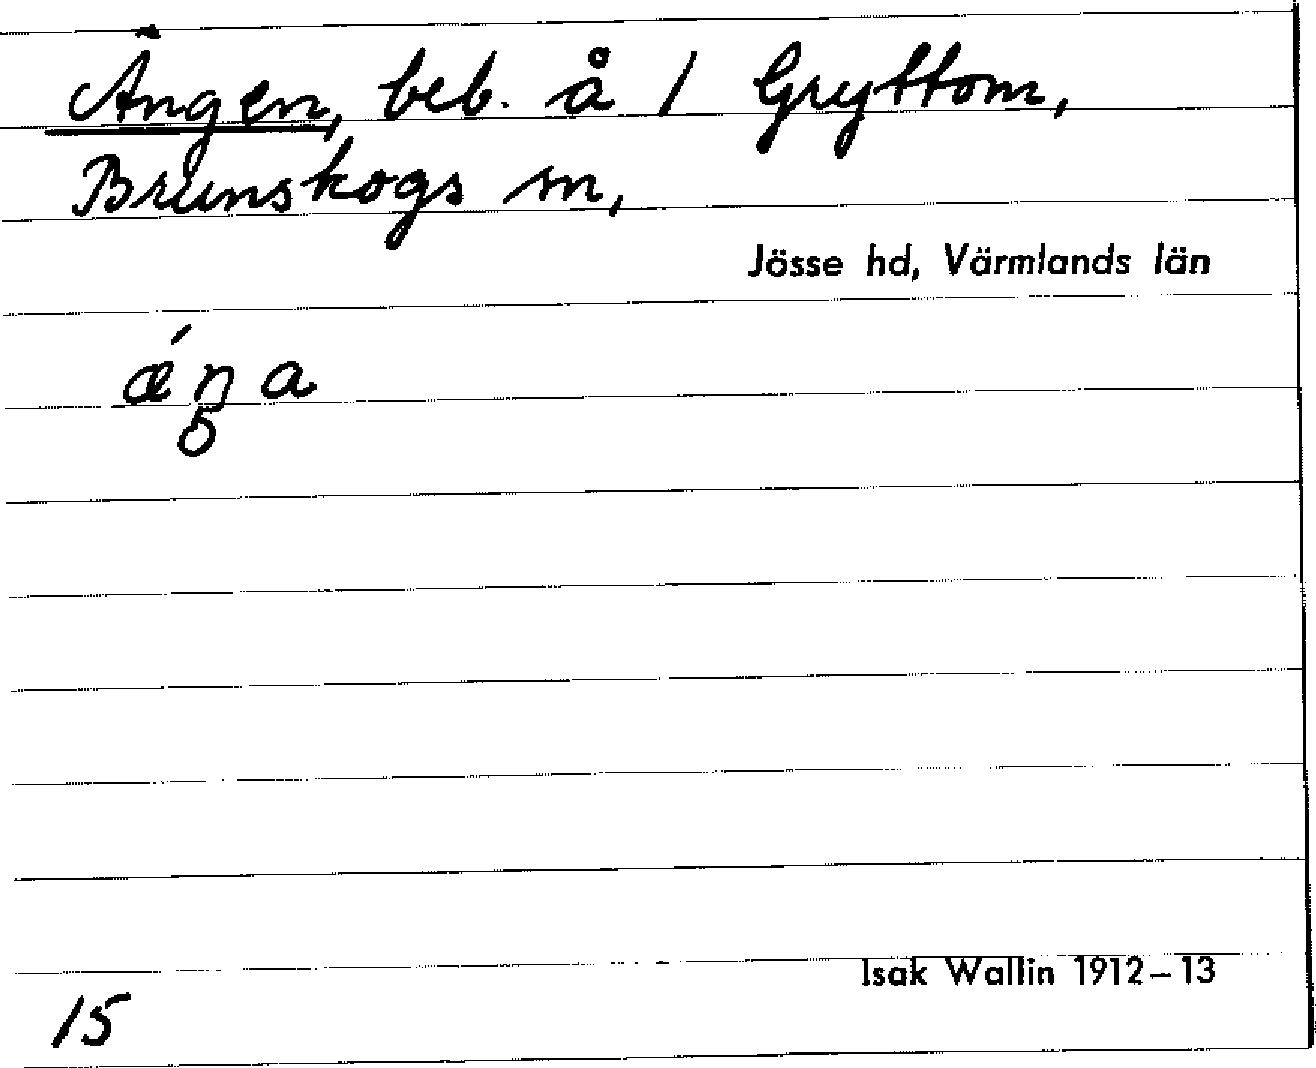 Ängen, beb. å 1 Gryttom,
Brunskogs sn,
Jösse hd, Värmlands län
ǽŋa
Isak Wallin 1912–13
15